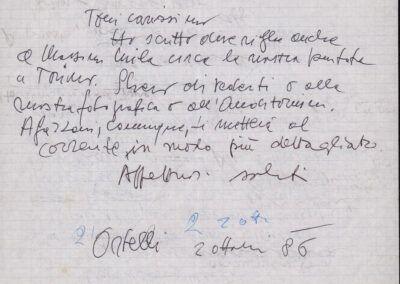 Toni carissimo
Ho scritto due righe anche
a Massimo Mila circa la nostra puntata
a Torino. Spero di vederti o alla
mostra fotografica o all'Auditorium.
comunque, ti metterà al
corrente, in modo più dettagliato.
Affettuosi saluti
2
Ortelli 2 ott 86